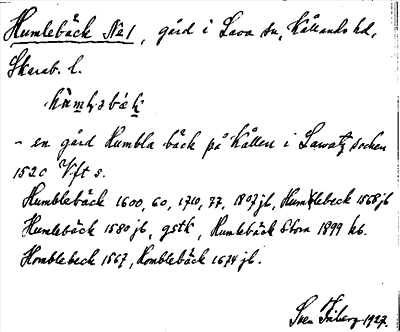 Humlebäck No 1, gård i Lava sn, Kållands hd,
Skarab. l.
- en gård Humbla bäck på Kållen i Lawatz socken
1520 Vft s.
Humblebäck 1600, 60, 1710, 77, 1807 jb, Humblebeck 1568 jb
Humlebäck 1580 jb, gstk, Humlebäck Stom 1899 kb.
Homblebeck 1567, Homblebäck 1674 jb.
Sven Friberg 1927.